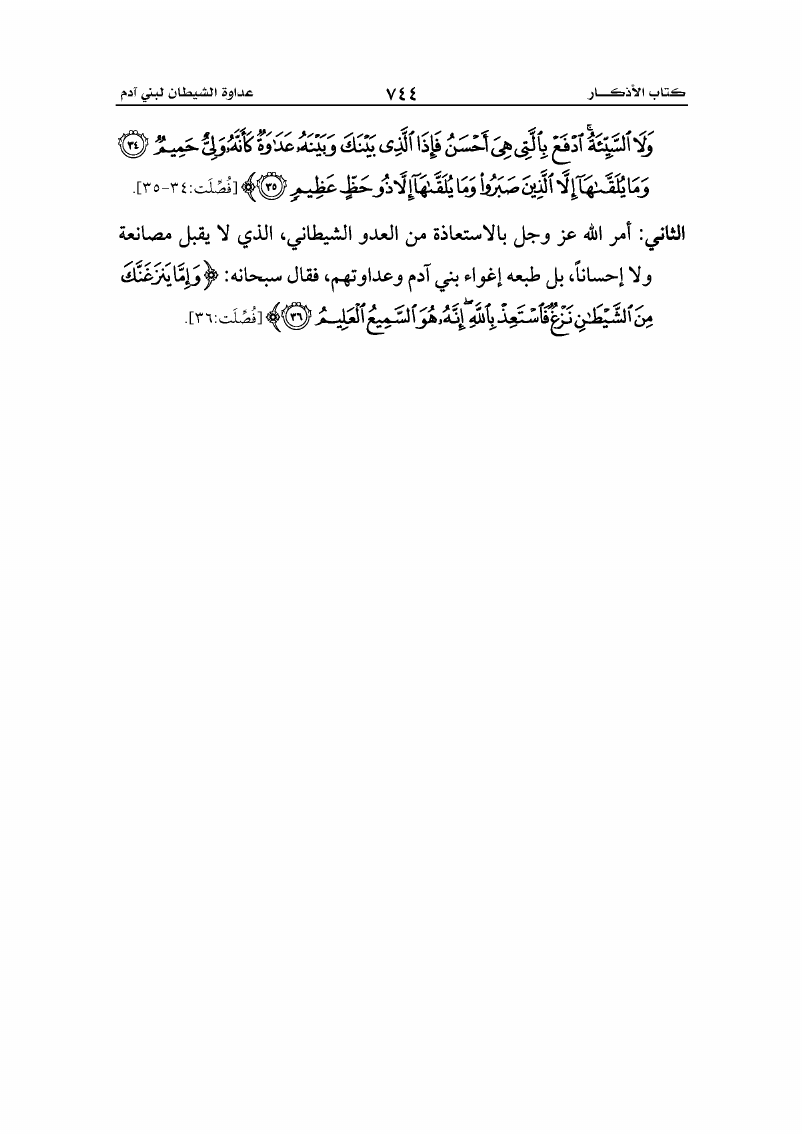 كتاب الأذكـــار ٧٤٤ عداوة الشيطان لبني آدم
وَلَا ٱلسَّيِّئَةُ ۚ ٱدْفَعْ بِٱلَّتِى هِىَ أَحْسَنُ فَإِذَا ٱلَّذِى بَيْنَكَ وَبَيْنَهُۥ عَدَٰوَةٌ كَأَنَّهُۥ وَلِىٌّ حَمِيمٌ ٣٤
وَمَا يُلَقَّىٰهَآ إِلَّا ٱلَّذِينَ صَبَرُوا۟ وَمَا يُلَقَّىٰهَآ إِلَّا ذُو حَظٍّ عَظِيمٍ ٣٥ ﴾ [فُصِّلَت:٣٤-٣٥].
الثاني: أمر الله عز وجل بالاستعاذة من العدو الشيطاني، الذي لا يقبل مصانعة
ولا إحساناً، بل طبعه إغواء بني آدم وعداوتهم، فقال سبحانه: ﴿ وَإِمَّا يَنزَغَنَّكَ
مِنَ ٱلشَّيْطَٰنِ نَزْغٌ فَٱسْتَعِذْ بِٱللَّهِ ۖ إِنَّهُۥ هُوَ ٱلسَّمِيعُ ٱلْعَلِيمُ ٣٦ ﴾ [فُصِّلَت:٣٦].